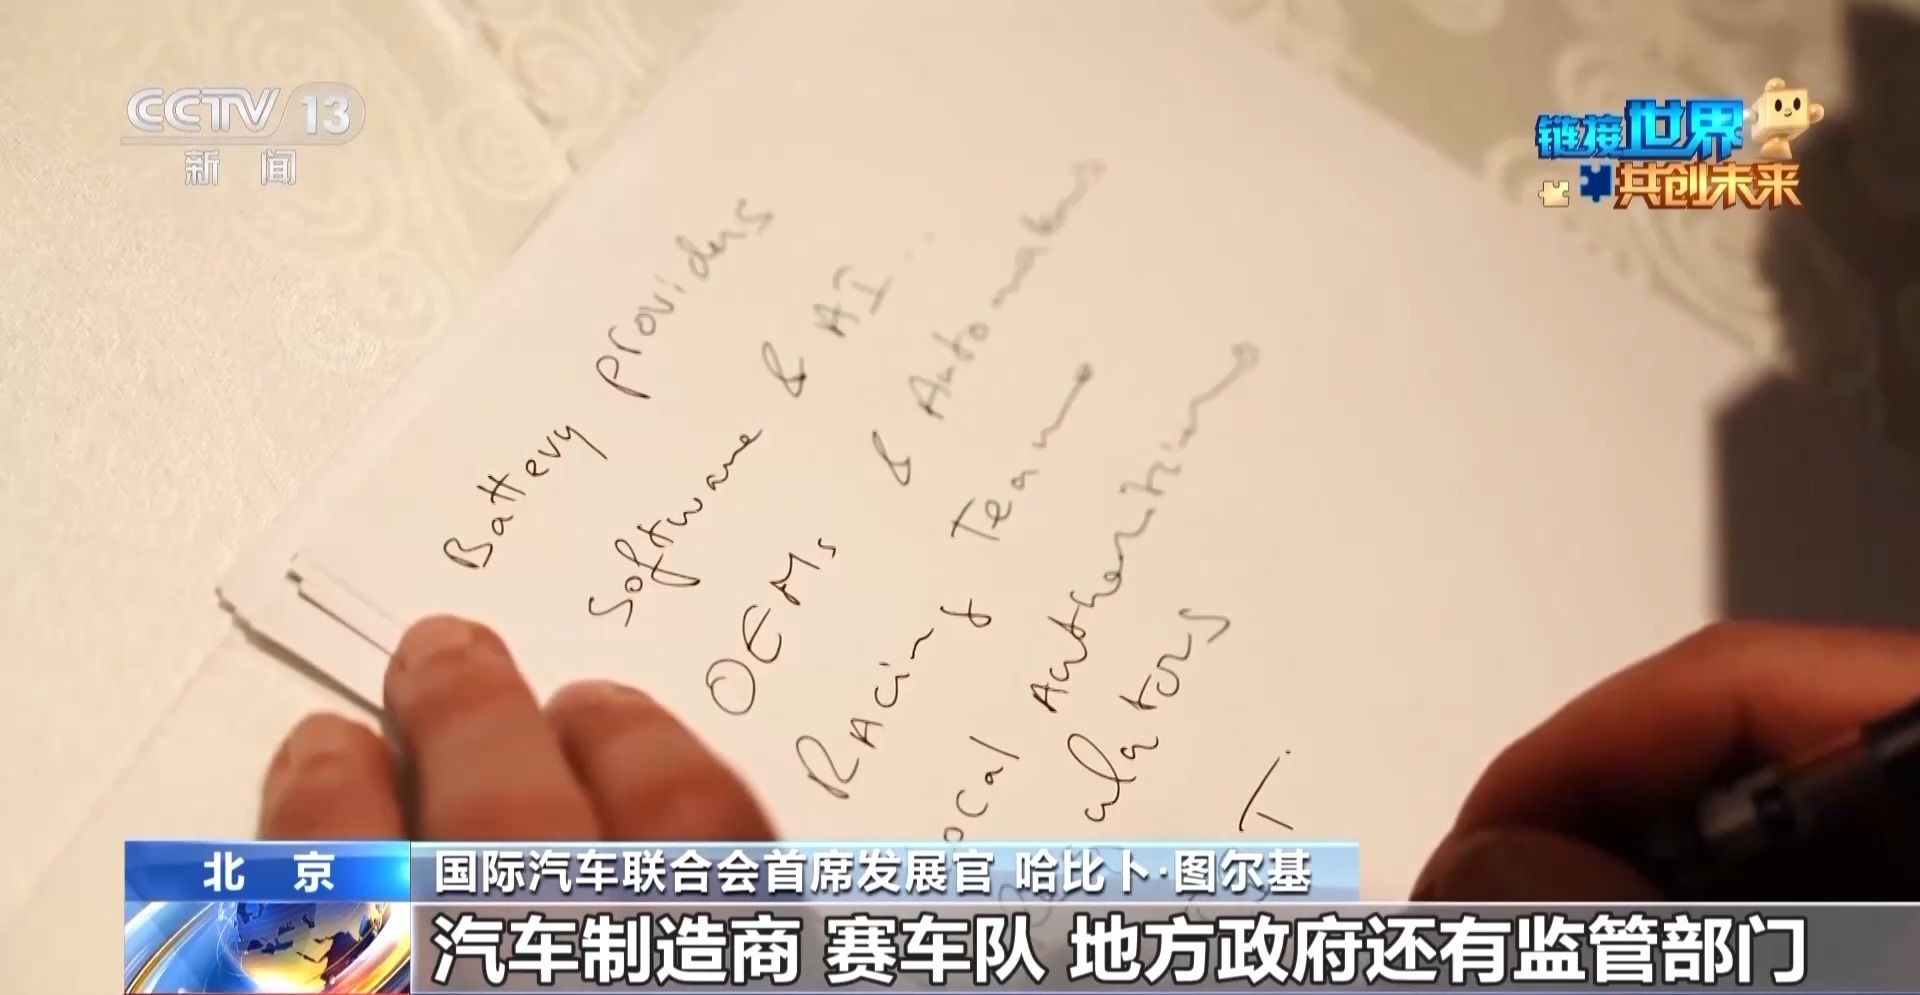 CCTV 13
新闻
链接世界
共创未来
Battery providers
Software & AI..
OEMs & Automakers
RAcing Team
ocal Authorities
ulators
T
北京
国际汽车联合会首席发展官 哈比卜·图尔基
汽车制造商 赛车队 地方政府还有监管部门